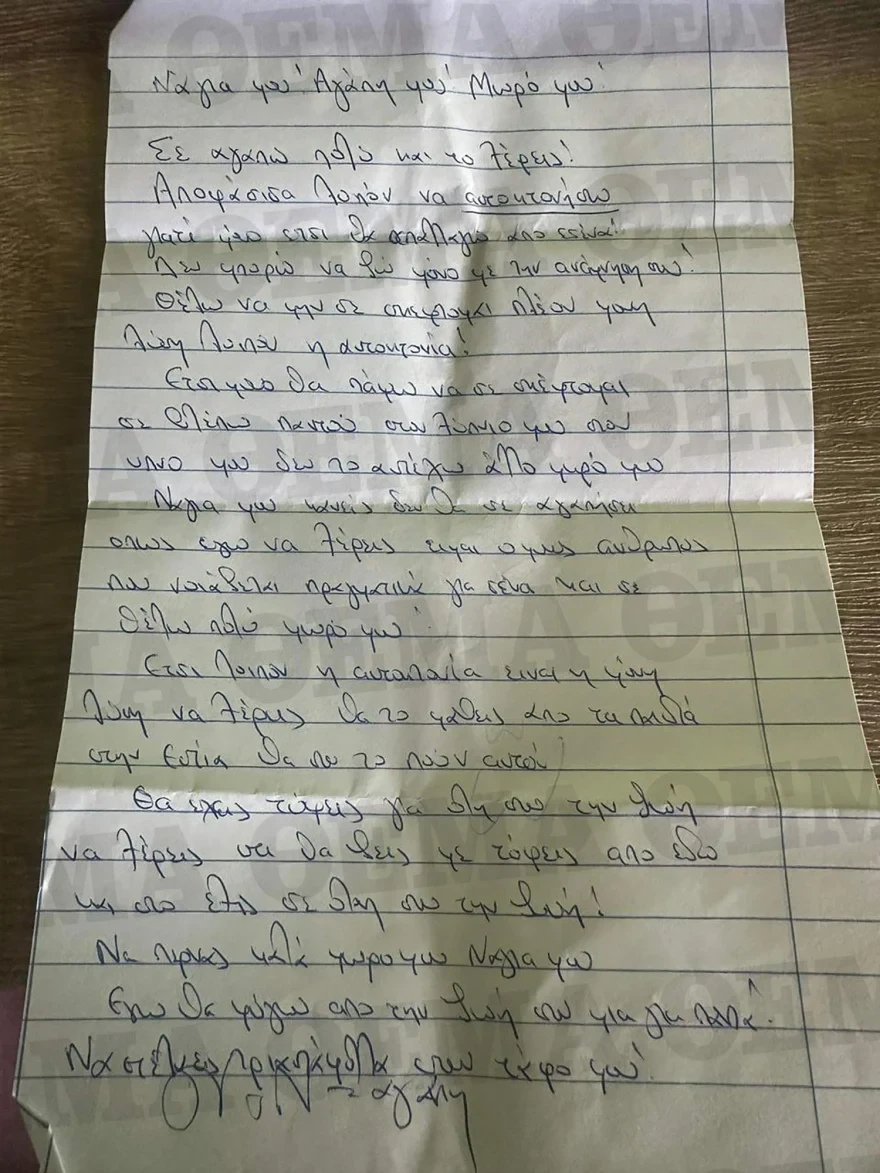 ΘΕΜΑ ΘΕΜΑ
Νάγια μου! Αγάπη μου! Μωρό μου!
Σε αγαπω πολύ και το ξέρεις!
Αποφάσισα λοιπόν να αυτοκτονήσω
γιατί μονο ετσι θα απαλλαγω απο εσένα!
Δεν μπορώ να ζω μόνο με την ανάμνηση σου!
Θέλω να μην σε σκεφτομαι πλέον μονη
λύση λοιπόν η αυτοκτονία!
Ετσι μονο θα πάψω να σε σκέφτομαι
σε βλέπω παντού στο ξύπνιο μου στον
υπνο μου δεν το αντέχω άλλο μωρό μου
Νάγια μου κανείς δεν θα σε αγαπήσει
οπως εγω να ξέρεις ειμαι ο μονος ανθρωπος
που νοιάζεται πραγματικά για σένα και σε
θέλω πολύ μωρό μου
Ετσι λοιπον η αυτοκτονία ειναι η μόνη
λύση να ξέρεις θα το μάθεις απο τα παιδιά
στην Εστία θα σου το πούν αυτοί
Θα εχεις τύψεις για όλη σου την ζωή
να ξέρεις να θα ζεις με τύψεις απο εδω
και στο εξής σε όλη σου την ζωή!
Να περνας καλά μωρο μου Νάγια μου
Εγω θα φύγω απο την ζωή σου μια για παντα!
Να στείλεις τριαντάφυλλα στον τάφο μου!
αγάπη